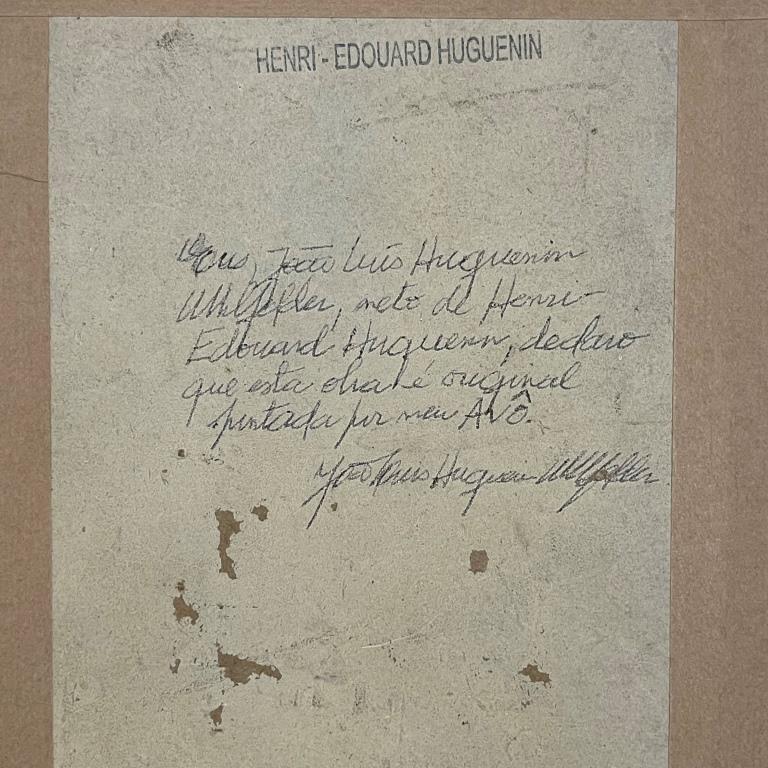 HENRI - EDOUARD HUGUENIN
João Luís Huguenin
neto de Henri-
Edouard Huguenin, declaro
que esta obra é original
pintada por meu AVÔ.
João Luís Huguenin